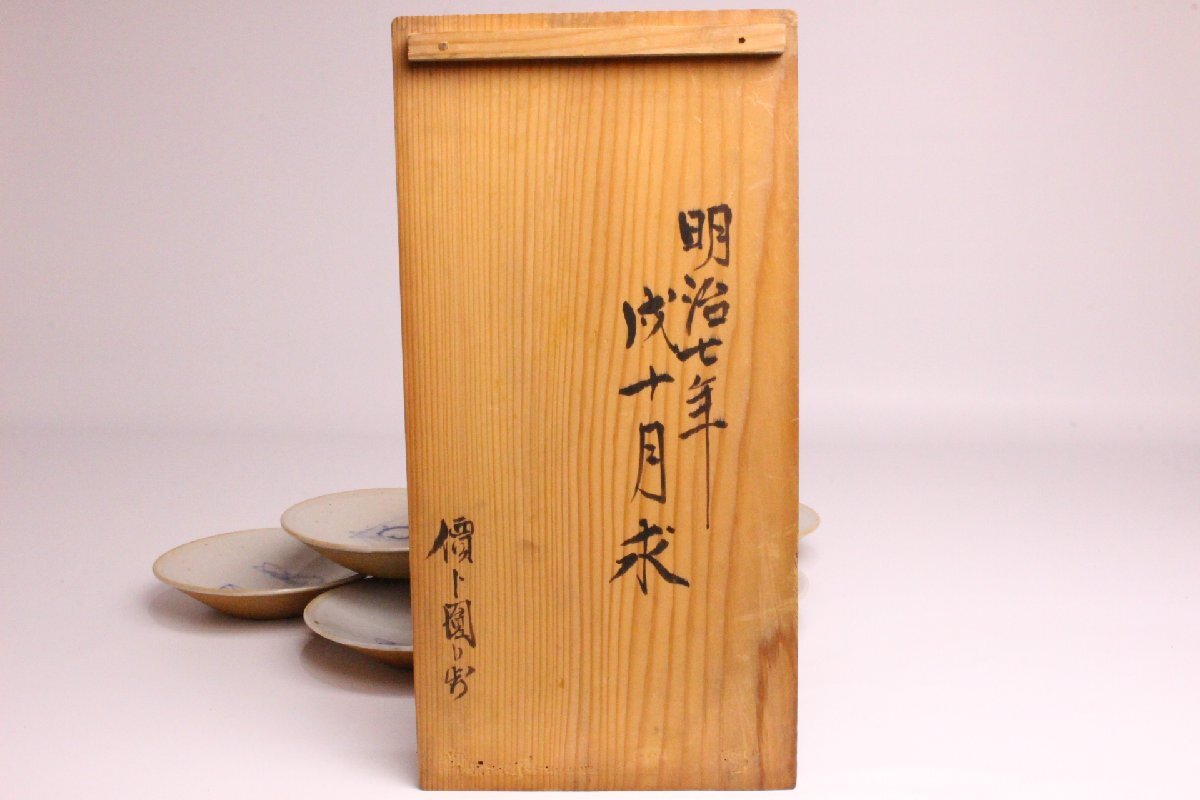 明治七年
戌十月求
價ト圓